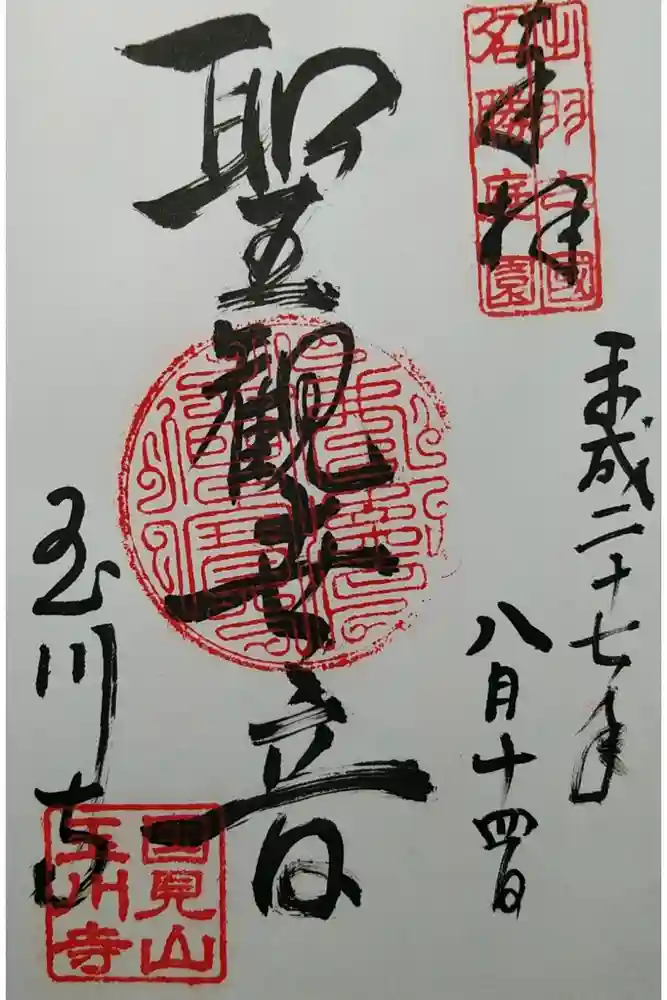 奉拝
出羽之國
名勝庭園
平成二十七年
八月十四日
聖観世音
玉川寺
国見山
玉川寺